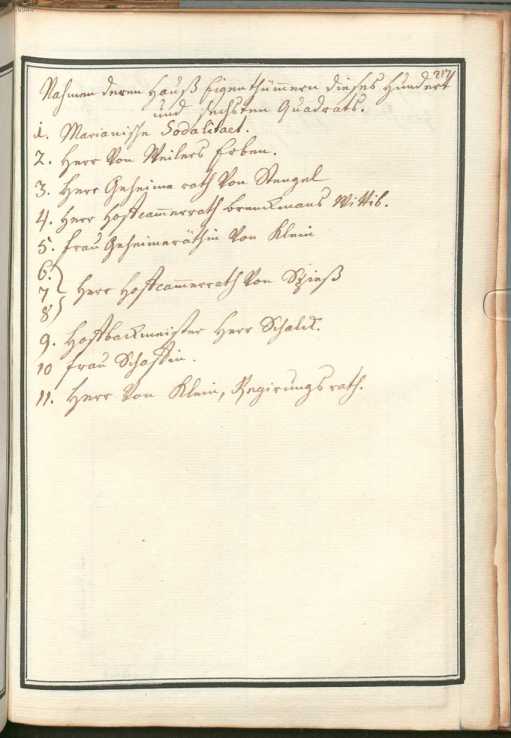 Nahmen deren Hauß Eigenthümern dieses Hundert
und sechsten Quadrats.
1. Marianische Sodalitaet.
2. Herr Von Weilers Erben.
3. Herr Geheime rath Von Stengel
4. Herr Hofcammerrath brenckmans Wittib.
5. Frau Geheimeräthin Von Klein
6.
7 Herr Hofcammerrath Von Spieß
8
9. Hofbackmeister Herr Schalck.
10 Frau
11. Herr Von Klein, Regirungsrath.